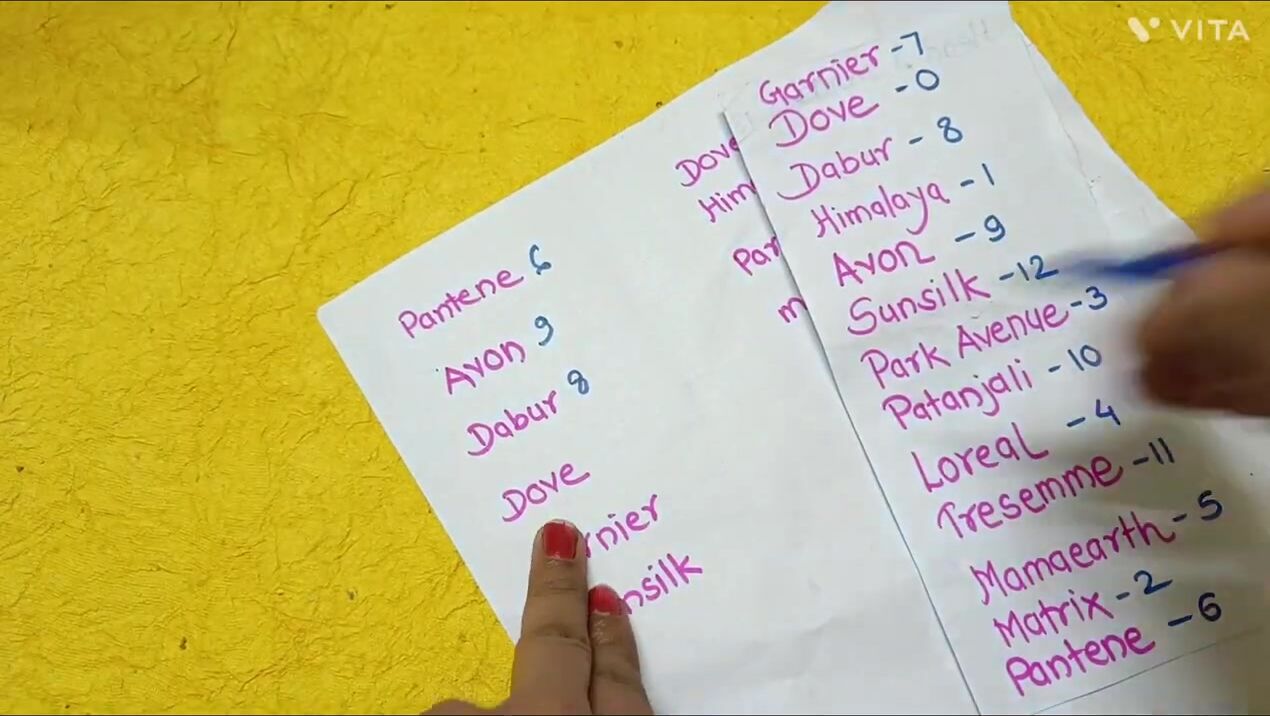 VITA
Pantene 6
Avon 9
Dabur 8
Dove
rnier
nsilk
Dove
Him
Par
m
Garnier - 7
Dove - 0
Dabur - 8
Himalaya - 1
Avon - 9
Sunsilk - 12
Park Avenue - 3
Patanjali - 10
Loreal - 4
Tresemme - 11
Mamaearth - 5
Matrix - 2
Pantene - 6